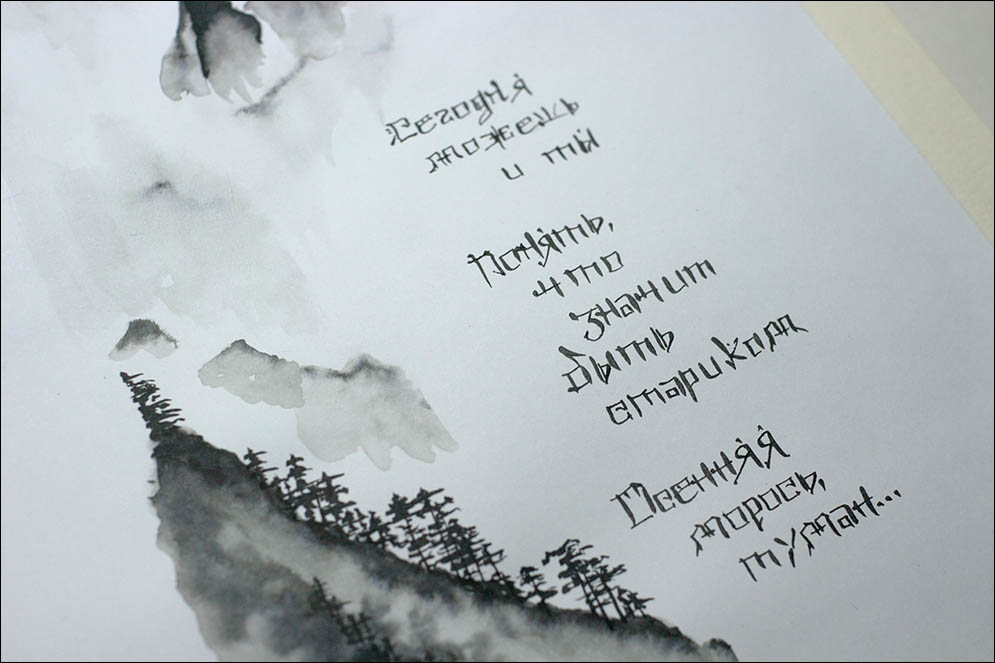 Сегодня
можешь
и ты
Понять,
что
значит
быть
стариком
Осенняя
морось,
туман...